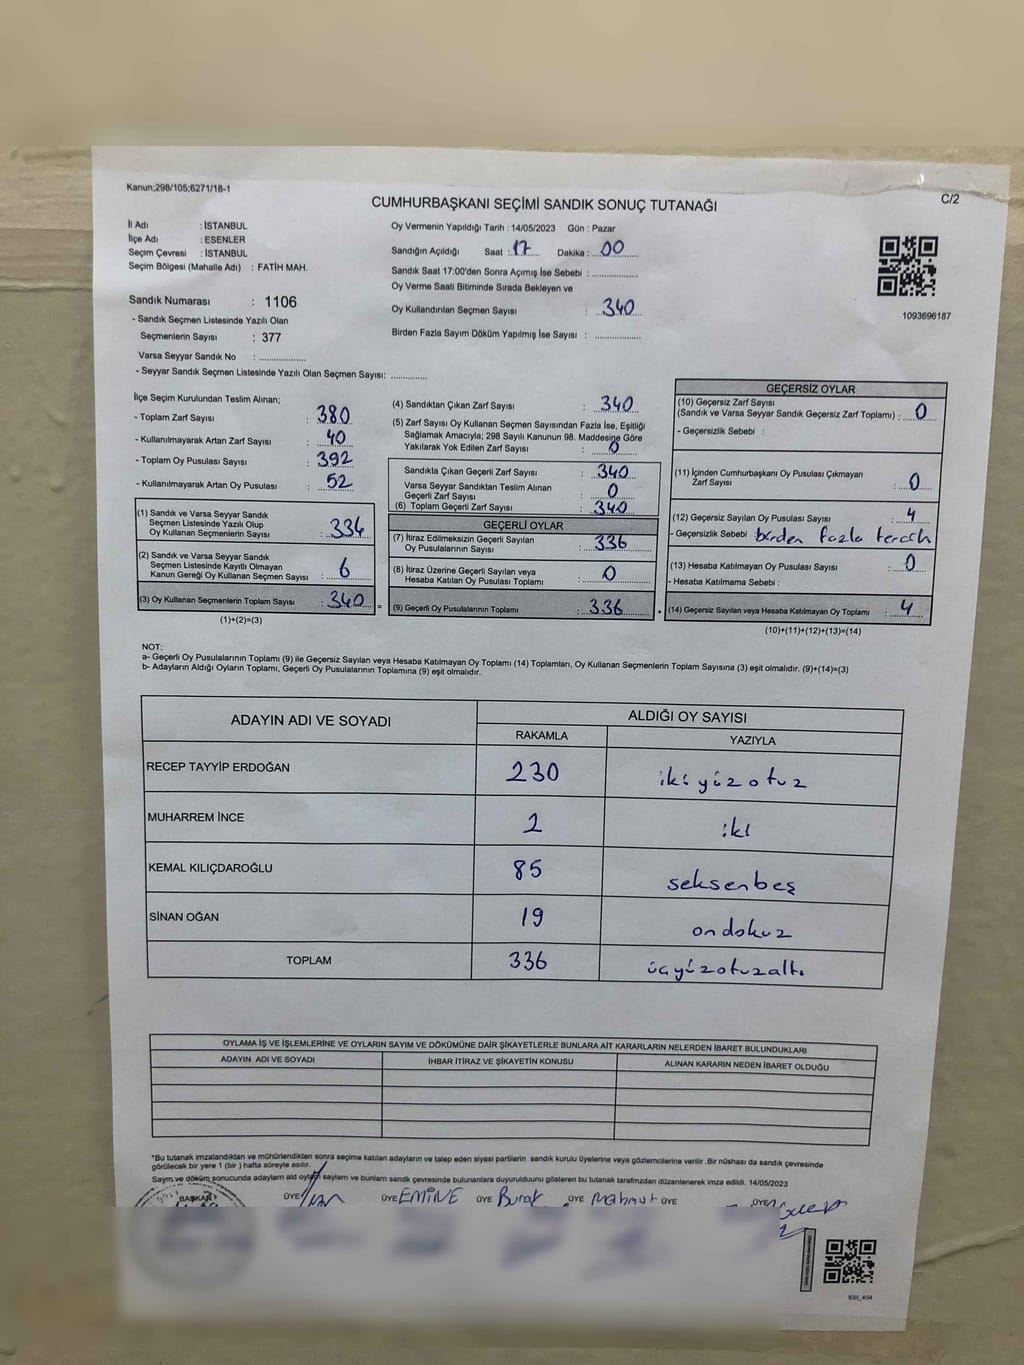 Kanun;298/105;6271/18-1
C/2
CUMHURBAŞKANI SEÇİMİ SANDIK SONUÇ TUTANAĞI
İl Adı : İSTANBUL
İlçe Adı : ESENLER
Seçim Çevresi : İSTANBUL
Seçim Bölgesi (Mahalle Adı) : FATİH MAH.
Sandık Numarası : 1106
- Sandık Seçmen Listesinde Yazılı Olan
Seçmenlerin Sayısı : 377
Varsa Seyyar Sandık No : ..............
- Seyyar Sandık Seçmen Listesinde Yazılı Olan Seçmen Sayısı: ............
Oy Vermenin Yapıldığı Tarih : 14/05/2023 Gün : Pazar
Sandığın Açıldığı Saat : 17 Dakika : 00
Sandık Saat 17:00'den Sonra Açımış İse Sebebi : ..............
Oy Verme Saati Bitiminde Sırada Bekleyen ve
Oy Kullandırılan Seçmen Sayısı : 340
Birden Fazla Sayım Döküm Yapılmış İse Sayısı : ..............
1093696187
İlçe Seçim Kurulundan Teslim Alınan;
- Toplam Zarf Sayısı : 380
- Kullanılmayarak Artan Zarf Sayısı : 40
- Toplam Oy Pusulası Sayısı : 392
- Kullanılmayarak Artan Oy Pusulası : 52
(1) Sandık ve Varsa Seyyar Sandık
Seçmen Listesinde Yazılı Olup
Oy Kullanan Seçmenlerin Sayısı : 334
(2) Sandık ve Varsa Seyyar Sandık
Seçmen Listesinde Kayıtlı Olmayan
Kanun Gereği Oy Kullanan Seçmen Sayısı : 6
(3) Oy Kullanan Seçmenlerin Toplam Sayısı : 340
(1)+(2)=(3)
=
(4) Sandıktan Çıkan Zarf Sayısı : 340
(5) Zarf Sayısı Oy Kullanan Seçmen Sayısından Fazla İse, Eşitliği
Sağlamak Amacıyla; 298 Sayılı Kanunun 98. Maddesine Göre
Yakılarak Yok Edilen Zarf Sayısı : 0
Sandıkta Çıkan Geçerli Zarf Sayısı : 340
Varsa Seyyar Sandıktan Teslim Alınan
Geçerli Zarf Sayısı : 0
(6) Toplam Geçerli Zarf Sayısı : 340
GEÇERLİ OYLAR
(7) İtiraz Edilmeksizin Geçerli Sayılan
Oy Pusulalarının Sayısı : 336
(8) İtiraz Üzerine Geçerli Sayılan veya
Hesaba Katılan Oy Pusulası Toplamı : 0
(9) Geçerli Oy Pusulalarının Toplamı : 336
+
GEÇERSİZ OYLAR
(10) Geçersiz Zarf Sayısı
(Sandık ve Varsa Seyyar Sandık Geçersiz Zarf Toplamı) : 0
- Geçersizlik Sebebi :
(11) İçinden Cumhurbaşkanı Oy Pusulası Çıkmayan
Zarf Sayısı : 0
(12) Geçersiz Sayılan Oy Pusulası Sayısı : 4
- Geçersizlik Sebebi birden fazla tercih
(13) Hesaba Katılmayan Oy Pusulası Sayısı : 0
- Hesaba Katılmama Sebebi :
(14) Geçersiz Sayılan veya Hesaba Katılmayan Oy Toplamı : 4
(10)+(11)+(12)+(13)=(14)
NOT:
a- Geçerli Oy Pusulalarının Toplamı (9) ile Geçersiz Sayılan veya Hesaba Katılmayan Oy Toplamı (14) Toplamları, Oy Kullanan Seçmenlerin Toplam Sayısına (3) eşit olmalıdır. (9)+(14)=(3)
b- Adayların Aldığı Oyların Toplamı, Geçerli Oy Pusulalarının Toplamına (9) eşit olmalıdır.
ADAYIN ADI VE SOYADI
ALDIĞI OY SAYISI
RAKAMLA YAZIYLA
RECEP TAYYİP ERDOĞAN 230 ikiyüzotuz
MUHARREM İNCE 2 iki
KEMAL KILIÇDAROĞLU 85 seksenbeş
SİNAN OĞAN 19 ondokuz
TOPLAM 336 üçyüzotuzaltı
OYLAMA İŞ VE İŞLEMLERİNE VE OYLARIN SAYIM VE DÖKÜMÜNE DAİR ŞİKAYETLERLE BUNLARA AİT KARARLARIN NELERDEN İBARET BULUNDUKLARI
ADAYIN ADI VE SOYADI İHBAR İTİRAZ VE ŞİKAYETİN KONUSU ALINAN KARARIN NEDEN İBARET OLDUĞU
*Bu tutanak imzalandıktan ve mühürlendikten sonra seçime katılan adayların ve talep eden siyasi partilerin sandık kurulu üyelerine veya gözlemcilerine verilir .Bir nüshası da sandık çevresinde
görülecek bir yere 1 (bir ) hafta süreyle asılır.
Sayım ve döküm sonucunda adayların ald oyların sayları ve bunların sandık çevresinde bulunanlara duyurulduunu gösteren bu tutanak tarafımızdan düzenlenerek imza edildi. 14/05/2023
BAŞKAN ÜYE ÜYE EMİNE ÜYE Burak ÜYE Mahmut ÜYE ÜYE
SSt_404